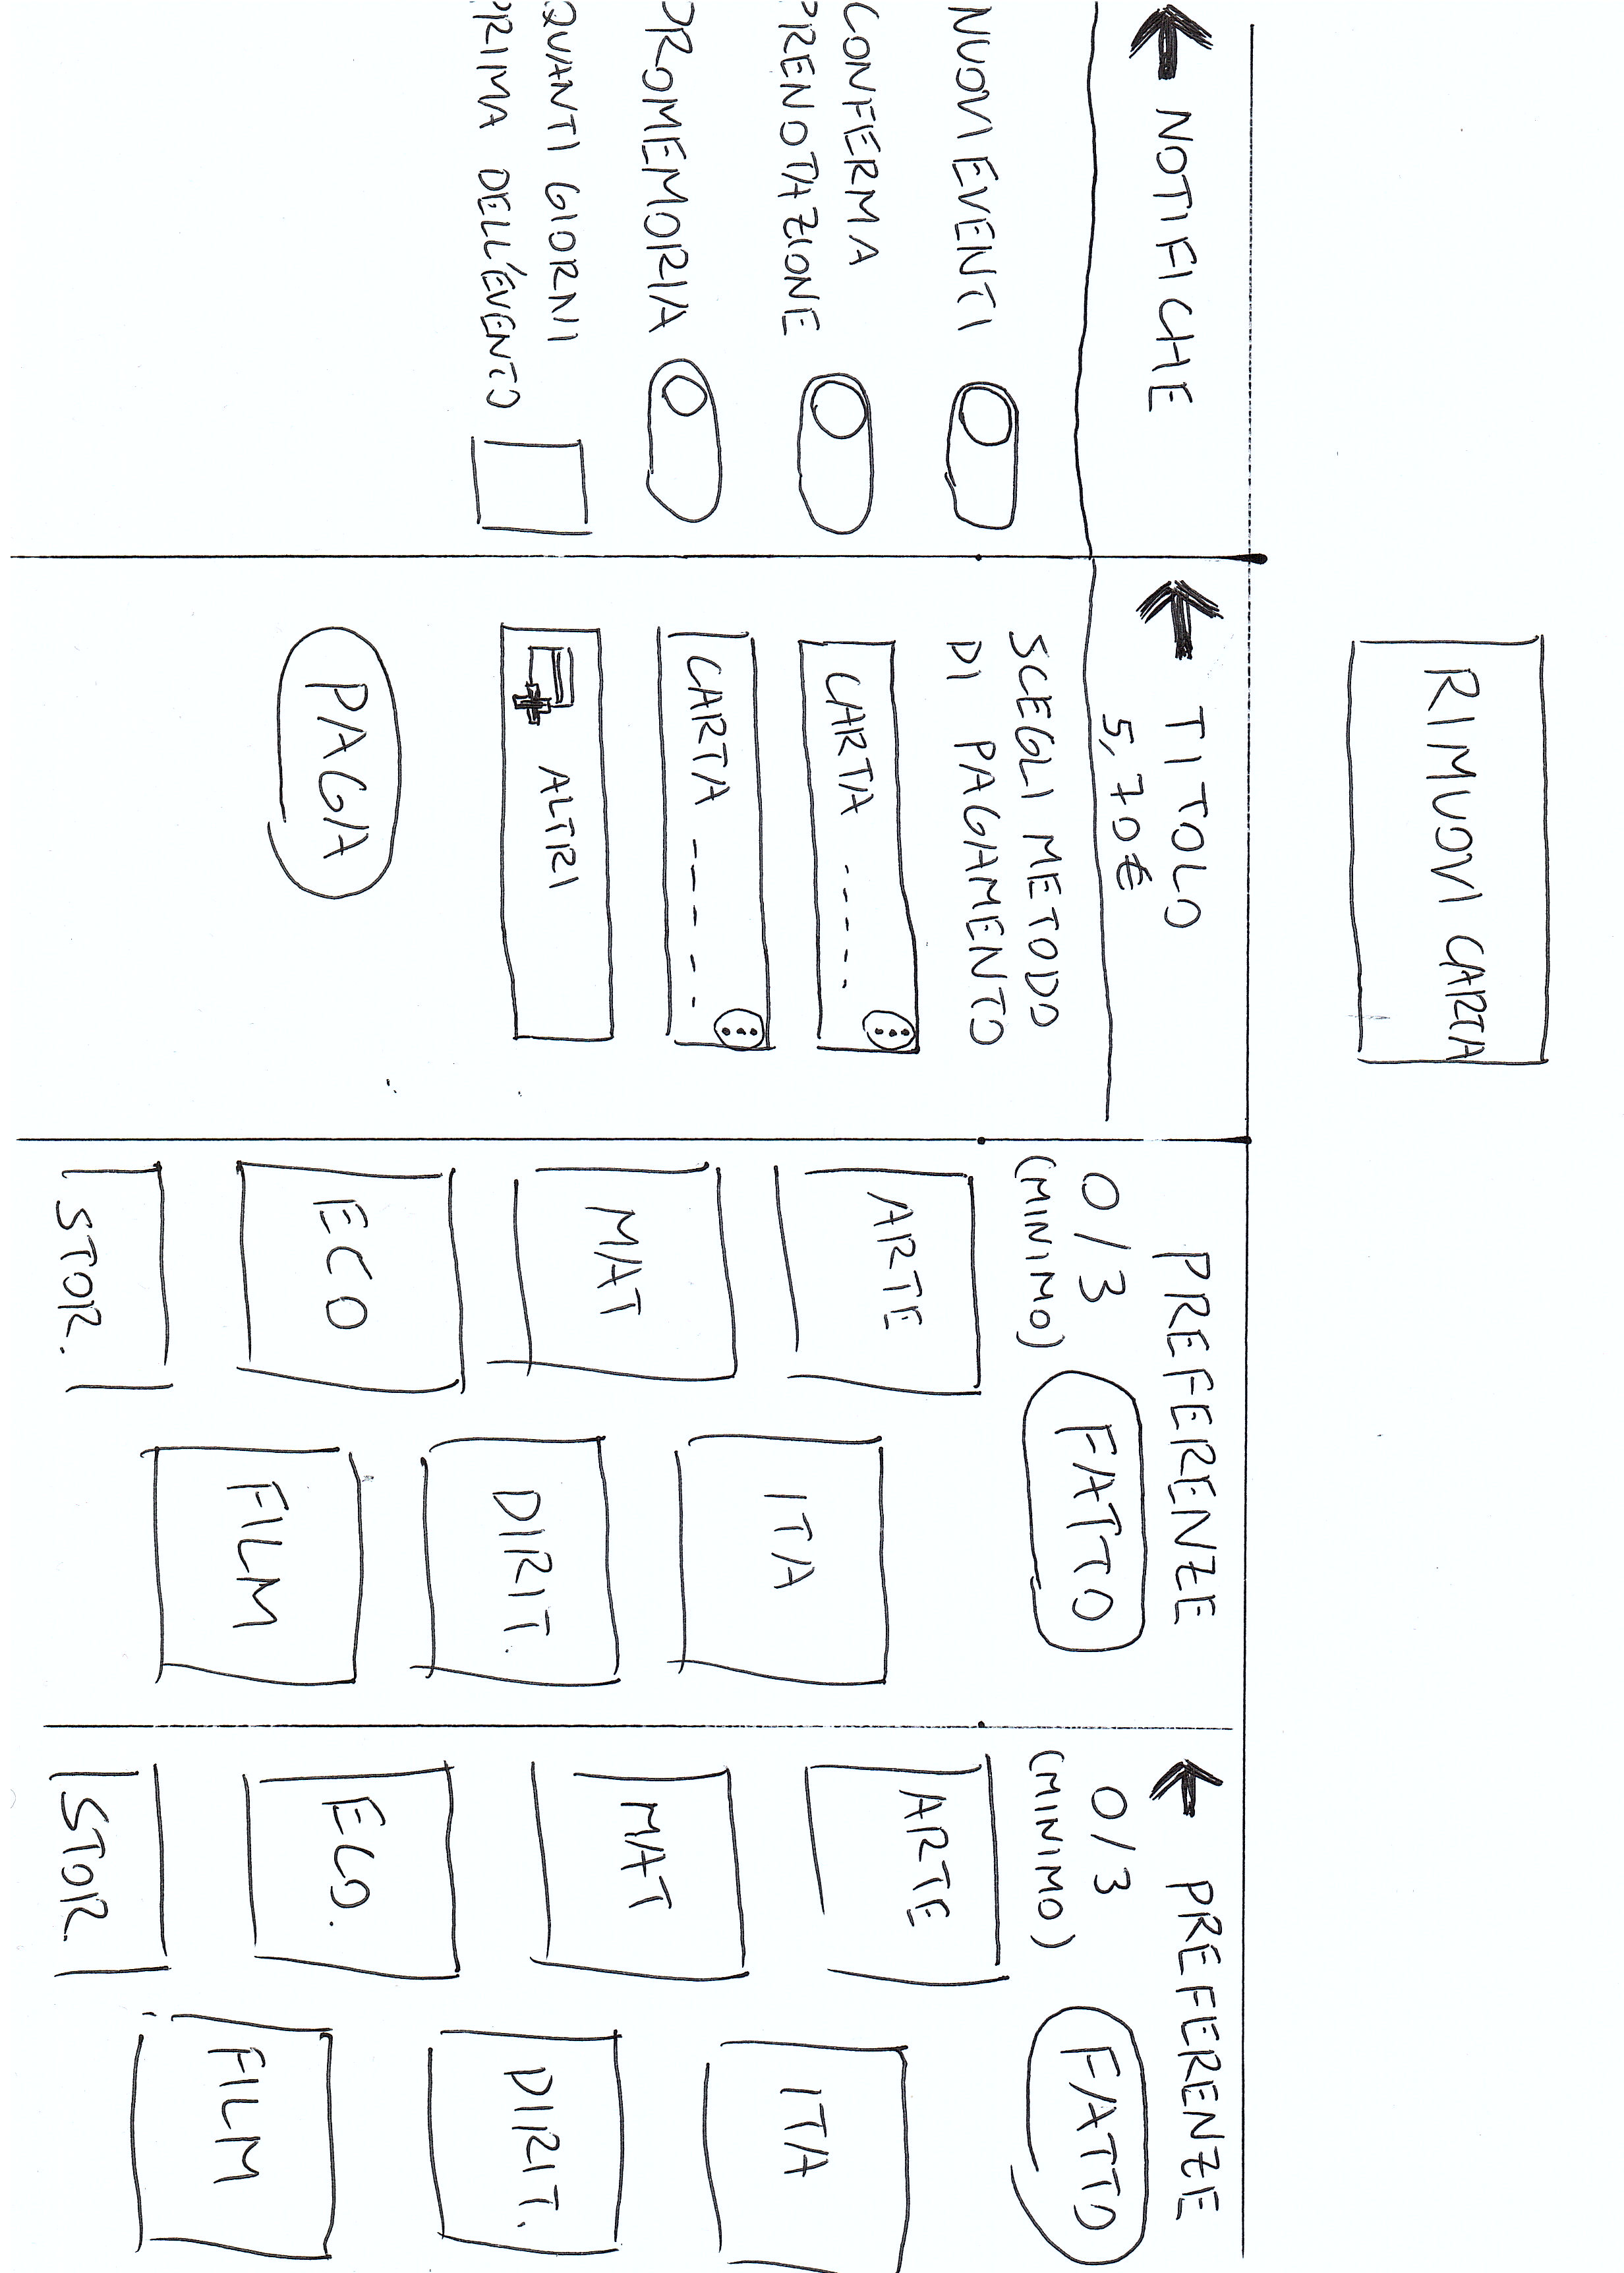 RIMUOVI CARTA
NOTIFICHE
NUOVI EVENTI
CONFERMA
PRENOTAZIONE
PROMEMORIA
QUANTI GIORNI
PRIMA DELL'EVENTO
TITOLO
5,70€
SCEGLI METODO
DI PAGAMENTO
CARTA -----
CARTA -----
ALTRI
PAGA
PREFERENZE
0/3
(MINIMO)
FATTO
ARTE
ITA
MAT
DIRIT.
ECO
FILM
STOR.
PREFERENZE
0/3
(MINIMO)
FATTO
ARTE
ITA
MAT
DIRIT.
ECO.
FILM
STOR.